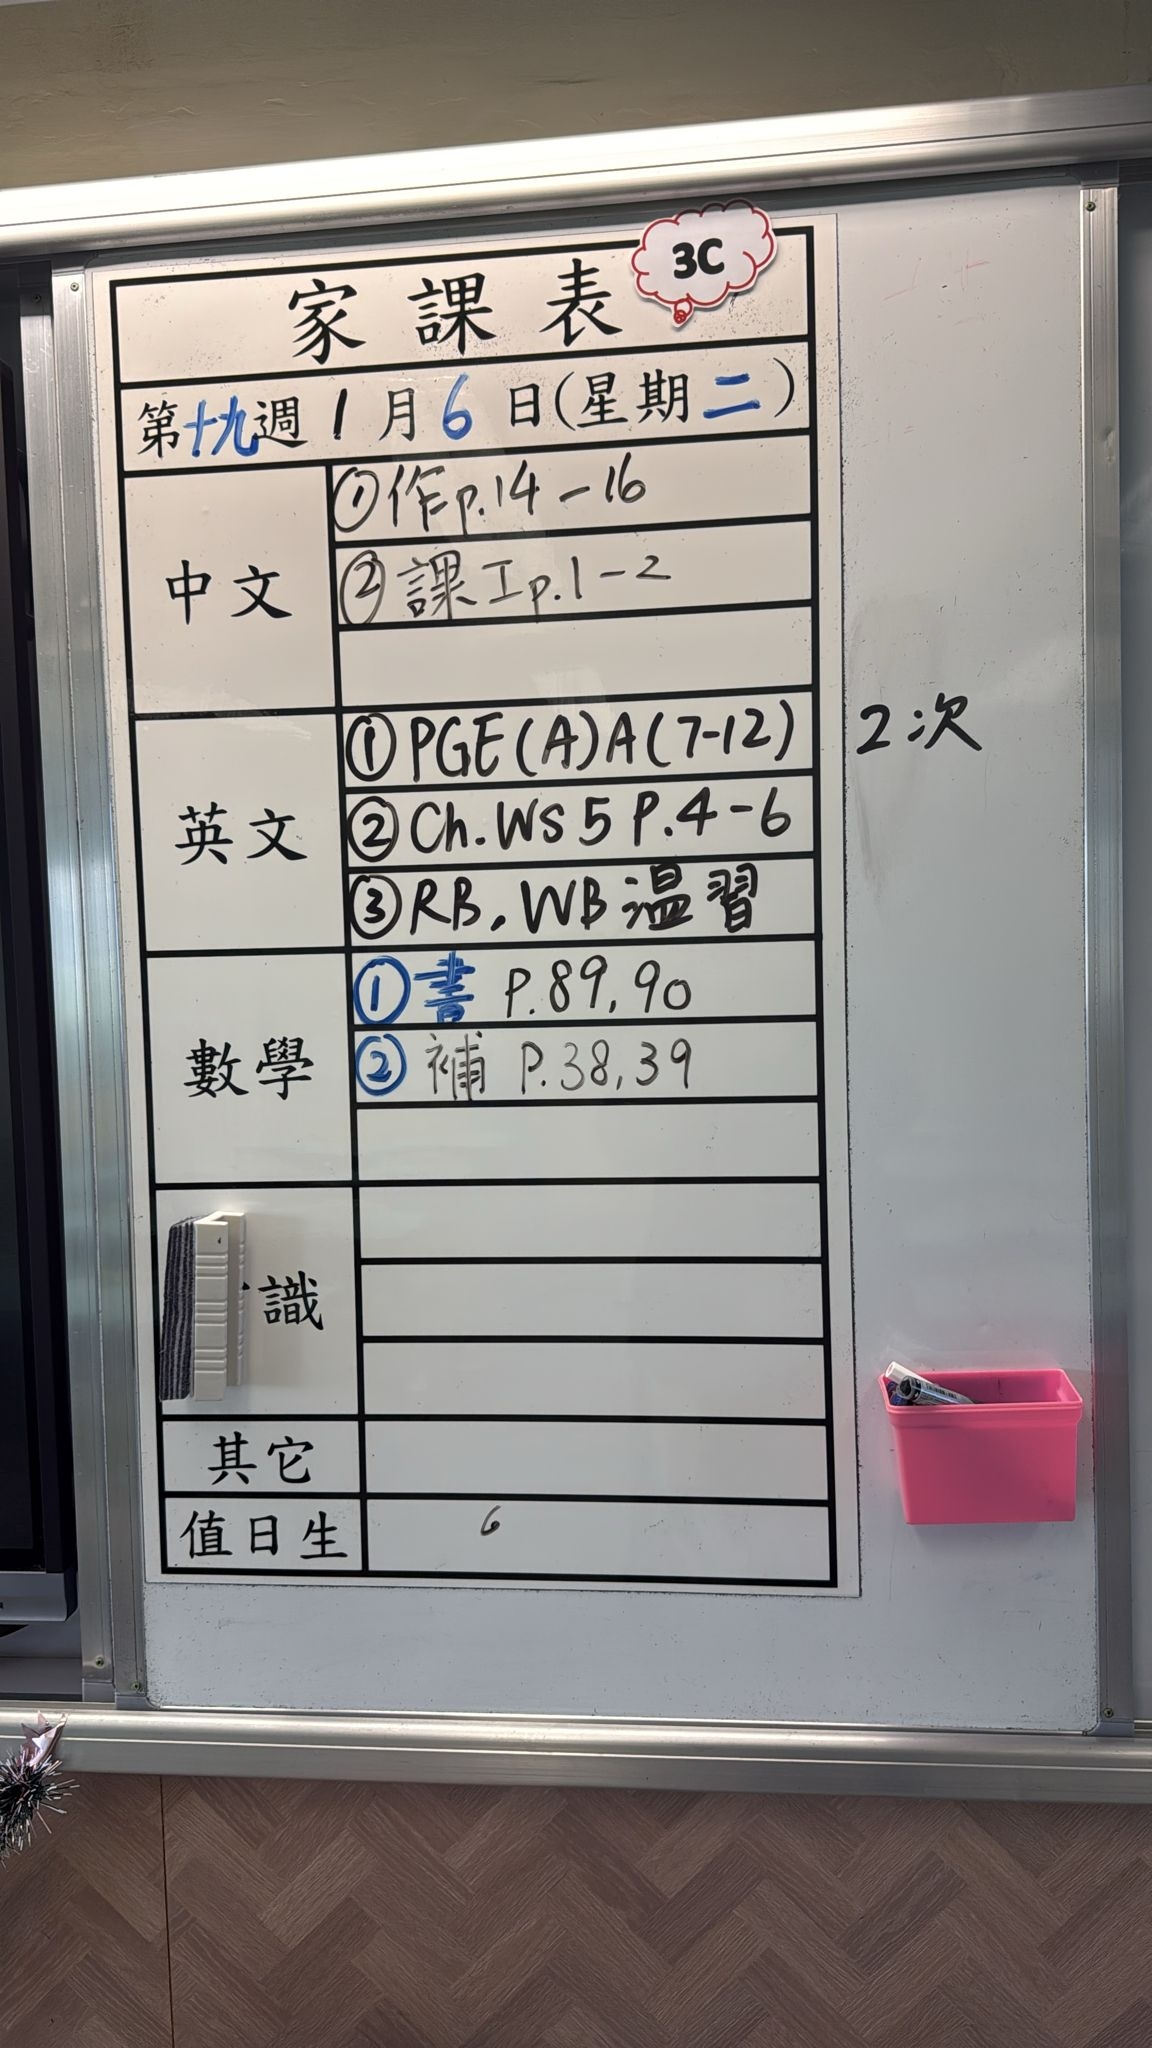 3C
家課表
第十九週 1月6日(星期二)
中文
①作p.14-16
②課工p.1-2
英文
①PGE(A)A(7-12) 2次
②Ch.WS 5 P.4-6
③RB, WB 溫習
數學
①書 P.89,90
②補 P.38,39
識
其它
值日生 6